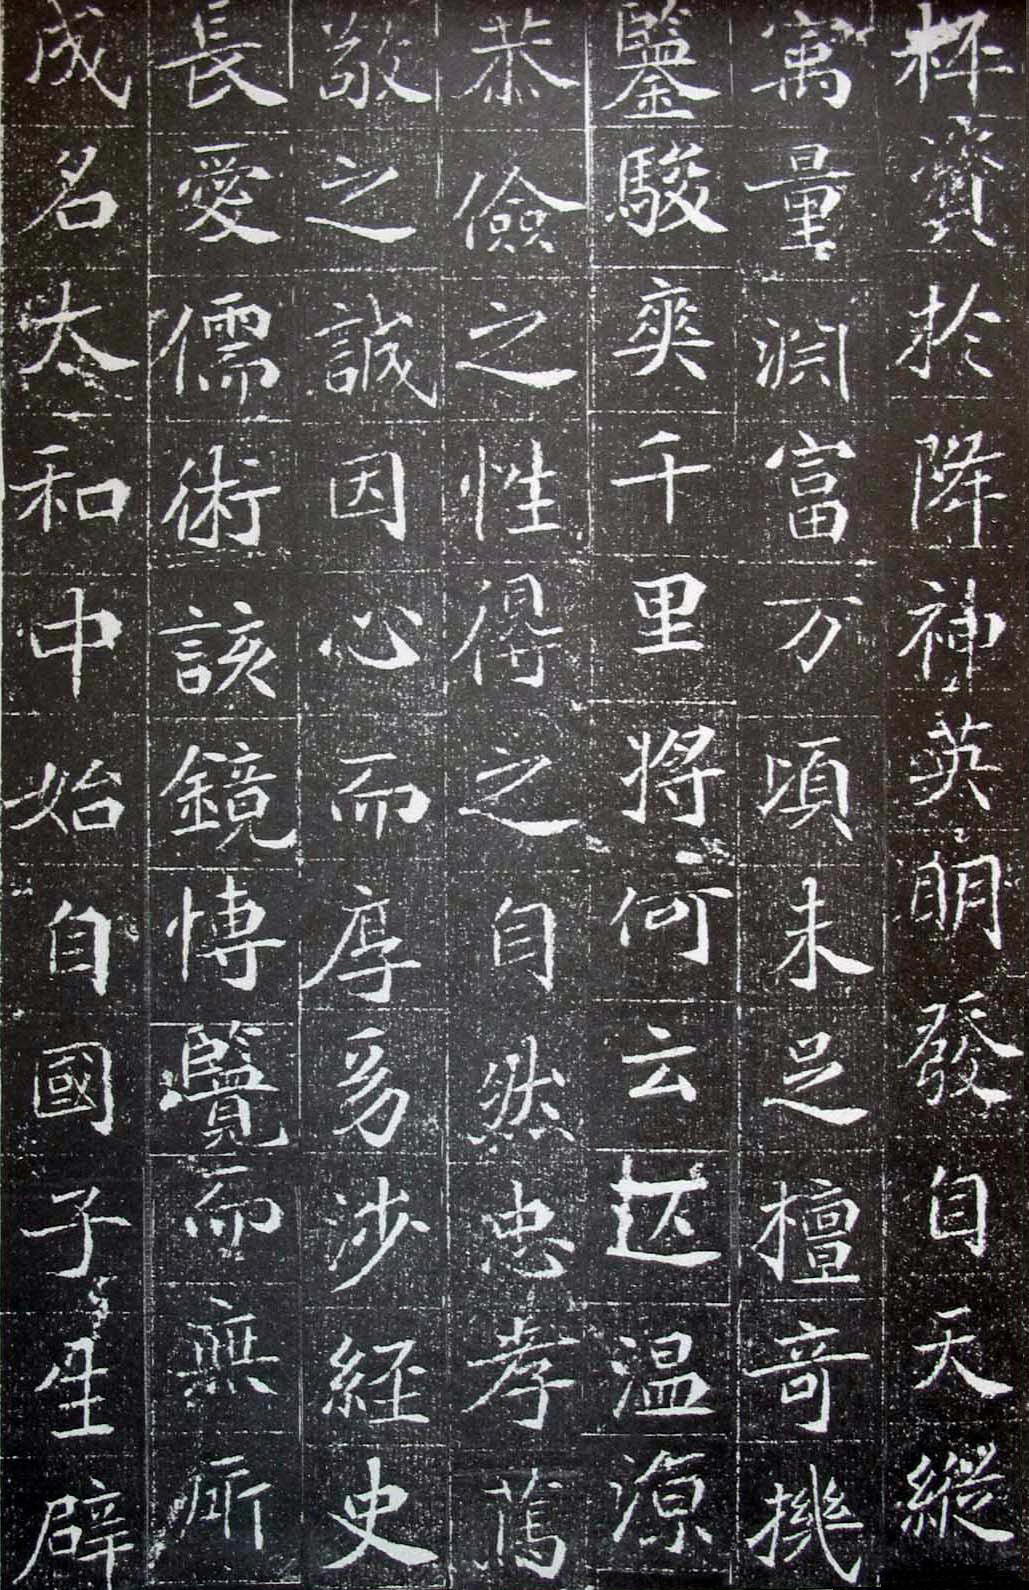 資於降神英明發自天縱
寓量淵富万頃未足檀奇機
鑒駿爽千里將何云迏温源
恭儉之性得之自然忠孝篤
敬之誠因心而厚幼涉經史
長愛儒術該鏡博覽而無所
成名太和中始自國子生辟